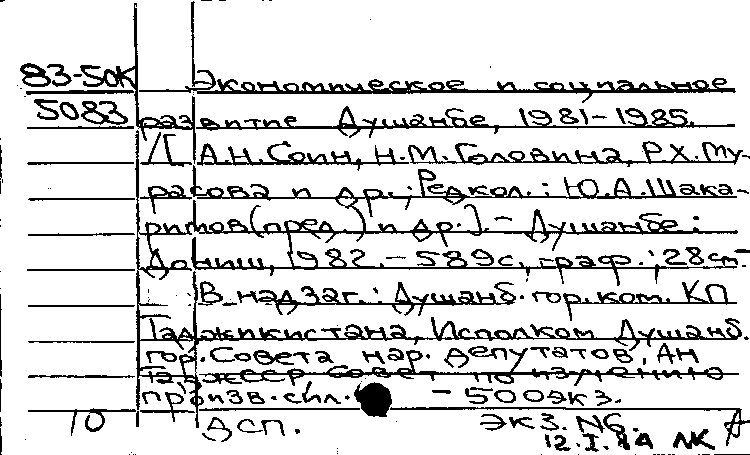 83-50К Экономическое и социальное
5083 развитие Душанбе, 1981-1985.
/[А.Н.Соин, Н.М.Головина, Р.Х.Му-
расова и др.; Редкол.: Ю.А.Шака-
римов(пред.) и др.].- Душанбе:
Дониш, 1982.-589с., граф.; 28см-
В надзаг.: Душанб. гор. ком. КП
Таджикистана, Исполком Душанб.
гор. Совета нар. депутатов, АН
ТаджССР, Совет по изучению
произв. сил. - 500экз.
10 ДСП. Экз. №6.
12.I.84